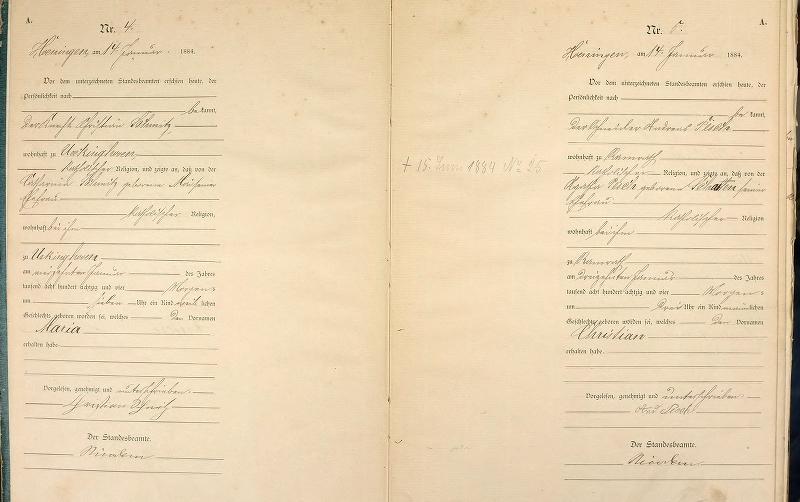 A.
Nr. 4.
Hoeningen, am 14 Januar 1884.
Vor dem unterzeichneten Standesbeamten erschien heute, der
Persönlichkeit nach
bekannt,
der Christian Schmitz
wohnhaft zu Ueckinghoven
katholischer Religion, und zeigte an, daß von der
Catharina Schmitz geborene
Ehefrau
katholischer Religion,
wohnhaft bei ihm
zu Ueckinghoven
am vierzehnten Januar des Jahres
tausend acht hundert achtzig und vier Morgens
um sieben Uhr ein Kind weiblichen
Geschlechts geboren worden sei, welches den Vornamen
Maria
erhalten habe.
Vorgelesen, genehmigt und unterschrieben.
Der Standesbeamte.
A.
Nr. 5.
Hoeningen, am 14. Januar 1884.
Vor dem unterzeichneten Standesbeamten erschien heute, der
Persönlichkeit nach
bekannt,
der Schneider Andreas Esch
wohnhaft zu Ramrath
katholischer Religion, und zeigte an, daß von der
Agatha Esch geborene seiner
Ehefrau
katholischer Religion
wohnhaft bei ihm
zu Ramrath
am dreizehnten Januar des Jahres
tausend acht hundert achtzig und vier Morgens
um drei Uhr ein Kind männlichen
Geschlechts geboren worden sei, welches den Vornamen
Christian
erhalten habe.
Vorgelesen, genehmigt und unterschrieben.
And. Esch
Der Standesbeamte.
+ 15. Juni 1884 No 25